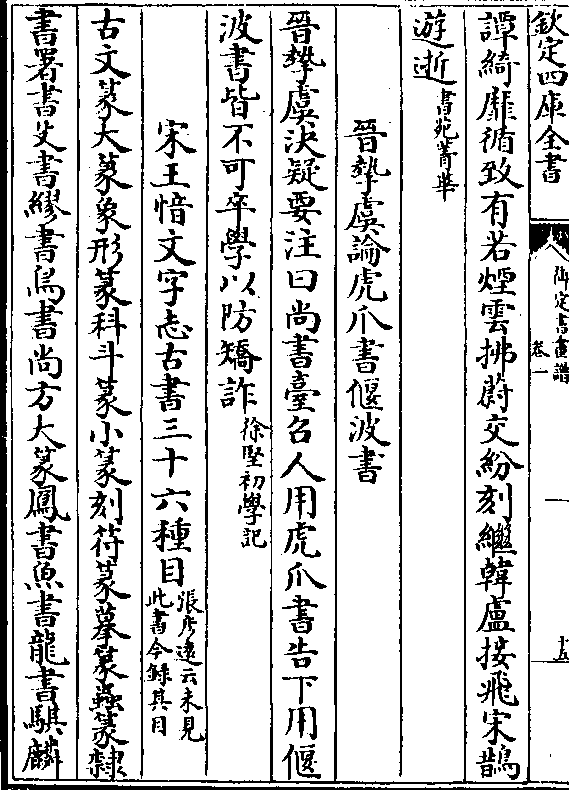 欽定四庫全書
御定書畫譜
卷一
十五
譚綺靡循致有若煙雲拂蔚交紛刻繼韓盧接飛宋鵲
遊逝書苑菁華
晉摯虞論虎爪書偃波書
晉摯虞決疑要注曰尚書臺召人用虎爪書告下用偃
波書皆不可卒學以防矯詐徐堅初學記
宋王愔文字志古書三十六種目張彦遠云未見此書今錄其目
古文篆大篆象形篆科斗篆小篆刻符篆摹篆蟲篆隸
書署書殳書繆書鳥書尚方大篆鳳書魚書龍書騏麟